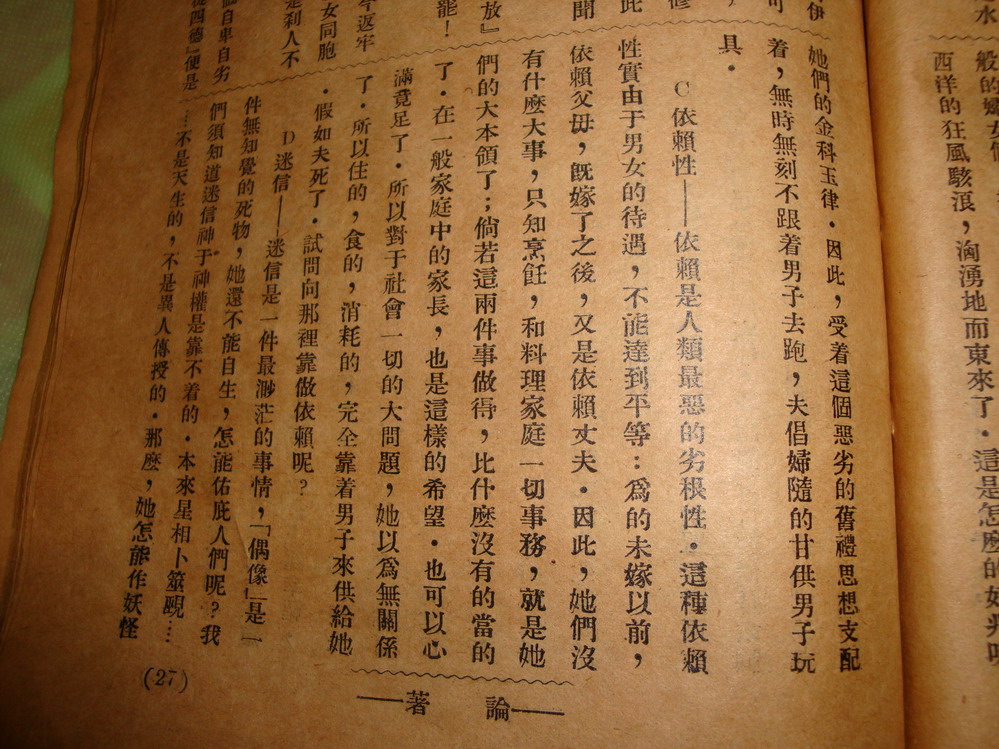 般的婦女們
西洋的狂風駭浪，洶湧地而東來了．這是怎麼的好
伊
可
修
此
聞
，
放』
罷！
今返牢
女同胞
是刹人不
個自卑自劣
從四德』便是
她們的金科玉律．因此，受着這個惡劣的舊禮思想支配
着，無時無刻不跟着男子去跑，夫倡婦隨的甘供男子玩
具．
C依賴性——依賴是人類最惡的劣根性．這種依賴
性實由于男女的待遇，不能達到平等：爲的未嫁以前，
依賴父毋，旣嫁了之後，又是依賴丈夫．因此，她們沒
有什麼大事，只知烹飪，和料理家庭一切事務，就是她
們的大本領了；倘若這兩件事做得，比什麼沒有的當的
了．在一般家庭中的家長，也是這樣的希望．也可以心
滿竟足了．所以對于社會一切的大問題，她以爲無關係
了．所以住的，食的，消耗的，完全靠着男子來供給她
．假如夫死了．試問向那裡靠做依賴呢？
D迷信——迷信是一件最渺茫的事情，「偶像」是一
件無知覺的死物，她還不能自生，怎能佑庇人們呢？我
們須知道迷信神于神權是靠不着的．本來星相卜筮覡……
…不是天生的，不是異人傳授的．那麼，她怎能作妖怪
——論著——
(27)